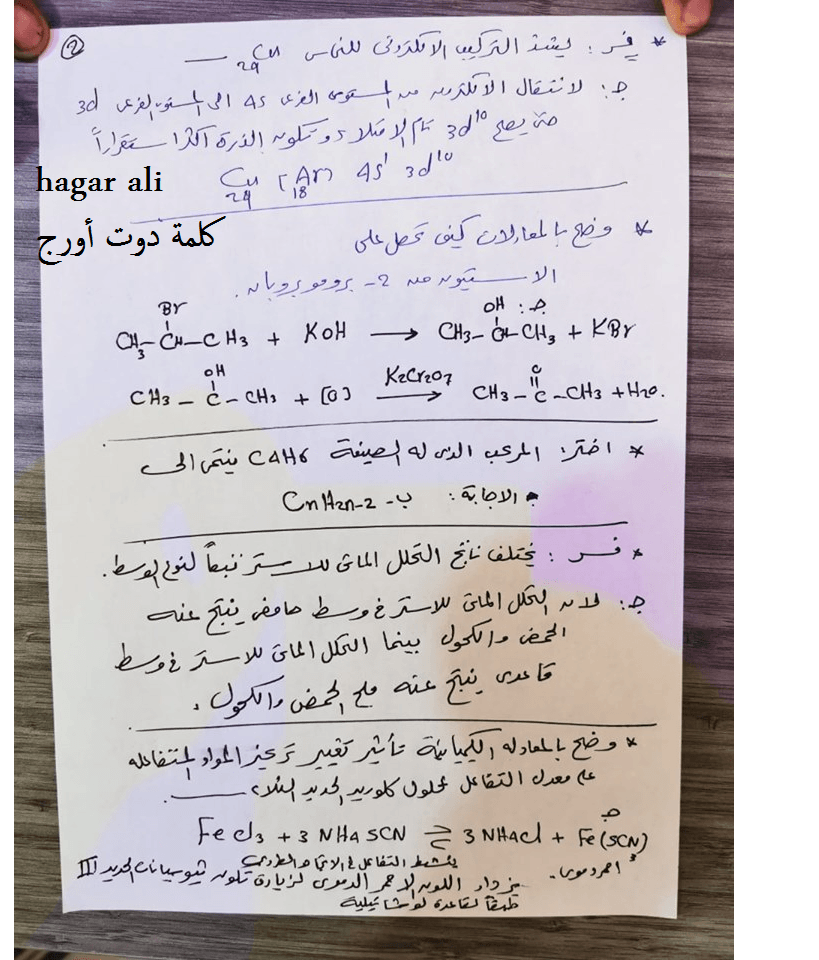 ②
* فسر : يشذ التركيب الالكترونى للنحاس 29Cu
جـ: لانتقال الالكترون من المستوى الفرعى 4s الى المستوى الفرعى 3d
حتى يصبح 3d¹⁰ تام الامتلاء وتكون الذرة أكثر استقراراً
29Cu [18Ar] 4s¹ 3d¹⁰
hagar ali
كلمة دوت أورج
* وضح بالمعادلات كيف تحصل على
الاسيتون من 2- بروموبروبان.
جـ:
Br OH
CH3-CH-CH3 + KOH → CH3-CH-CH3 + KBr
OH K2Cr2O7 O
CH3 - C - CH3 + [O] → CH3 - C - CH3 + H2O.
* اختر: المركب الذى له الصيغة C4H6 ينتمى الى
الاجابة : ب- CnH2n-2
* فسر : يختلف ناتج التحلل المائى للاستر تبعاً لنوع الوسط.
جـ: لان التحلل المائى للاستر فى وسط حامضى ينتج عنه
الحمض والكحول بينما التحلل المائى للاستر فى وسط
قاعدى ينتج عنه ملح الحمض والكحول .
* وضح بالمعادله الكيميائية تأثير تغيير تركيز المواد المتفاعله
على معدل التفاعل لمحلول كلوريد الحديد
جـ
FeCl3 + 3 NH4SCN ⇌ 3 NH4Cl + Fe(SCN)3
احمر دموى.
ينشط التفاعل فى الاتجاه الطردى
يزداد اللون الاحمر الدموى لزيادة تكون ثيوسيانات الحديد III
طبقاً لقاعدة لوشاتيلية